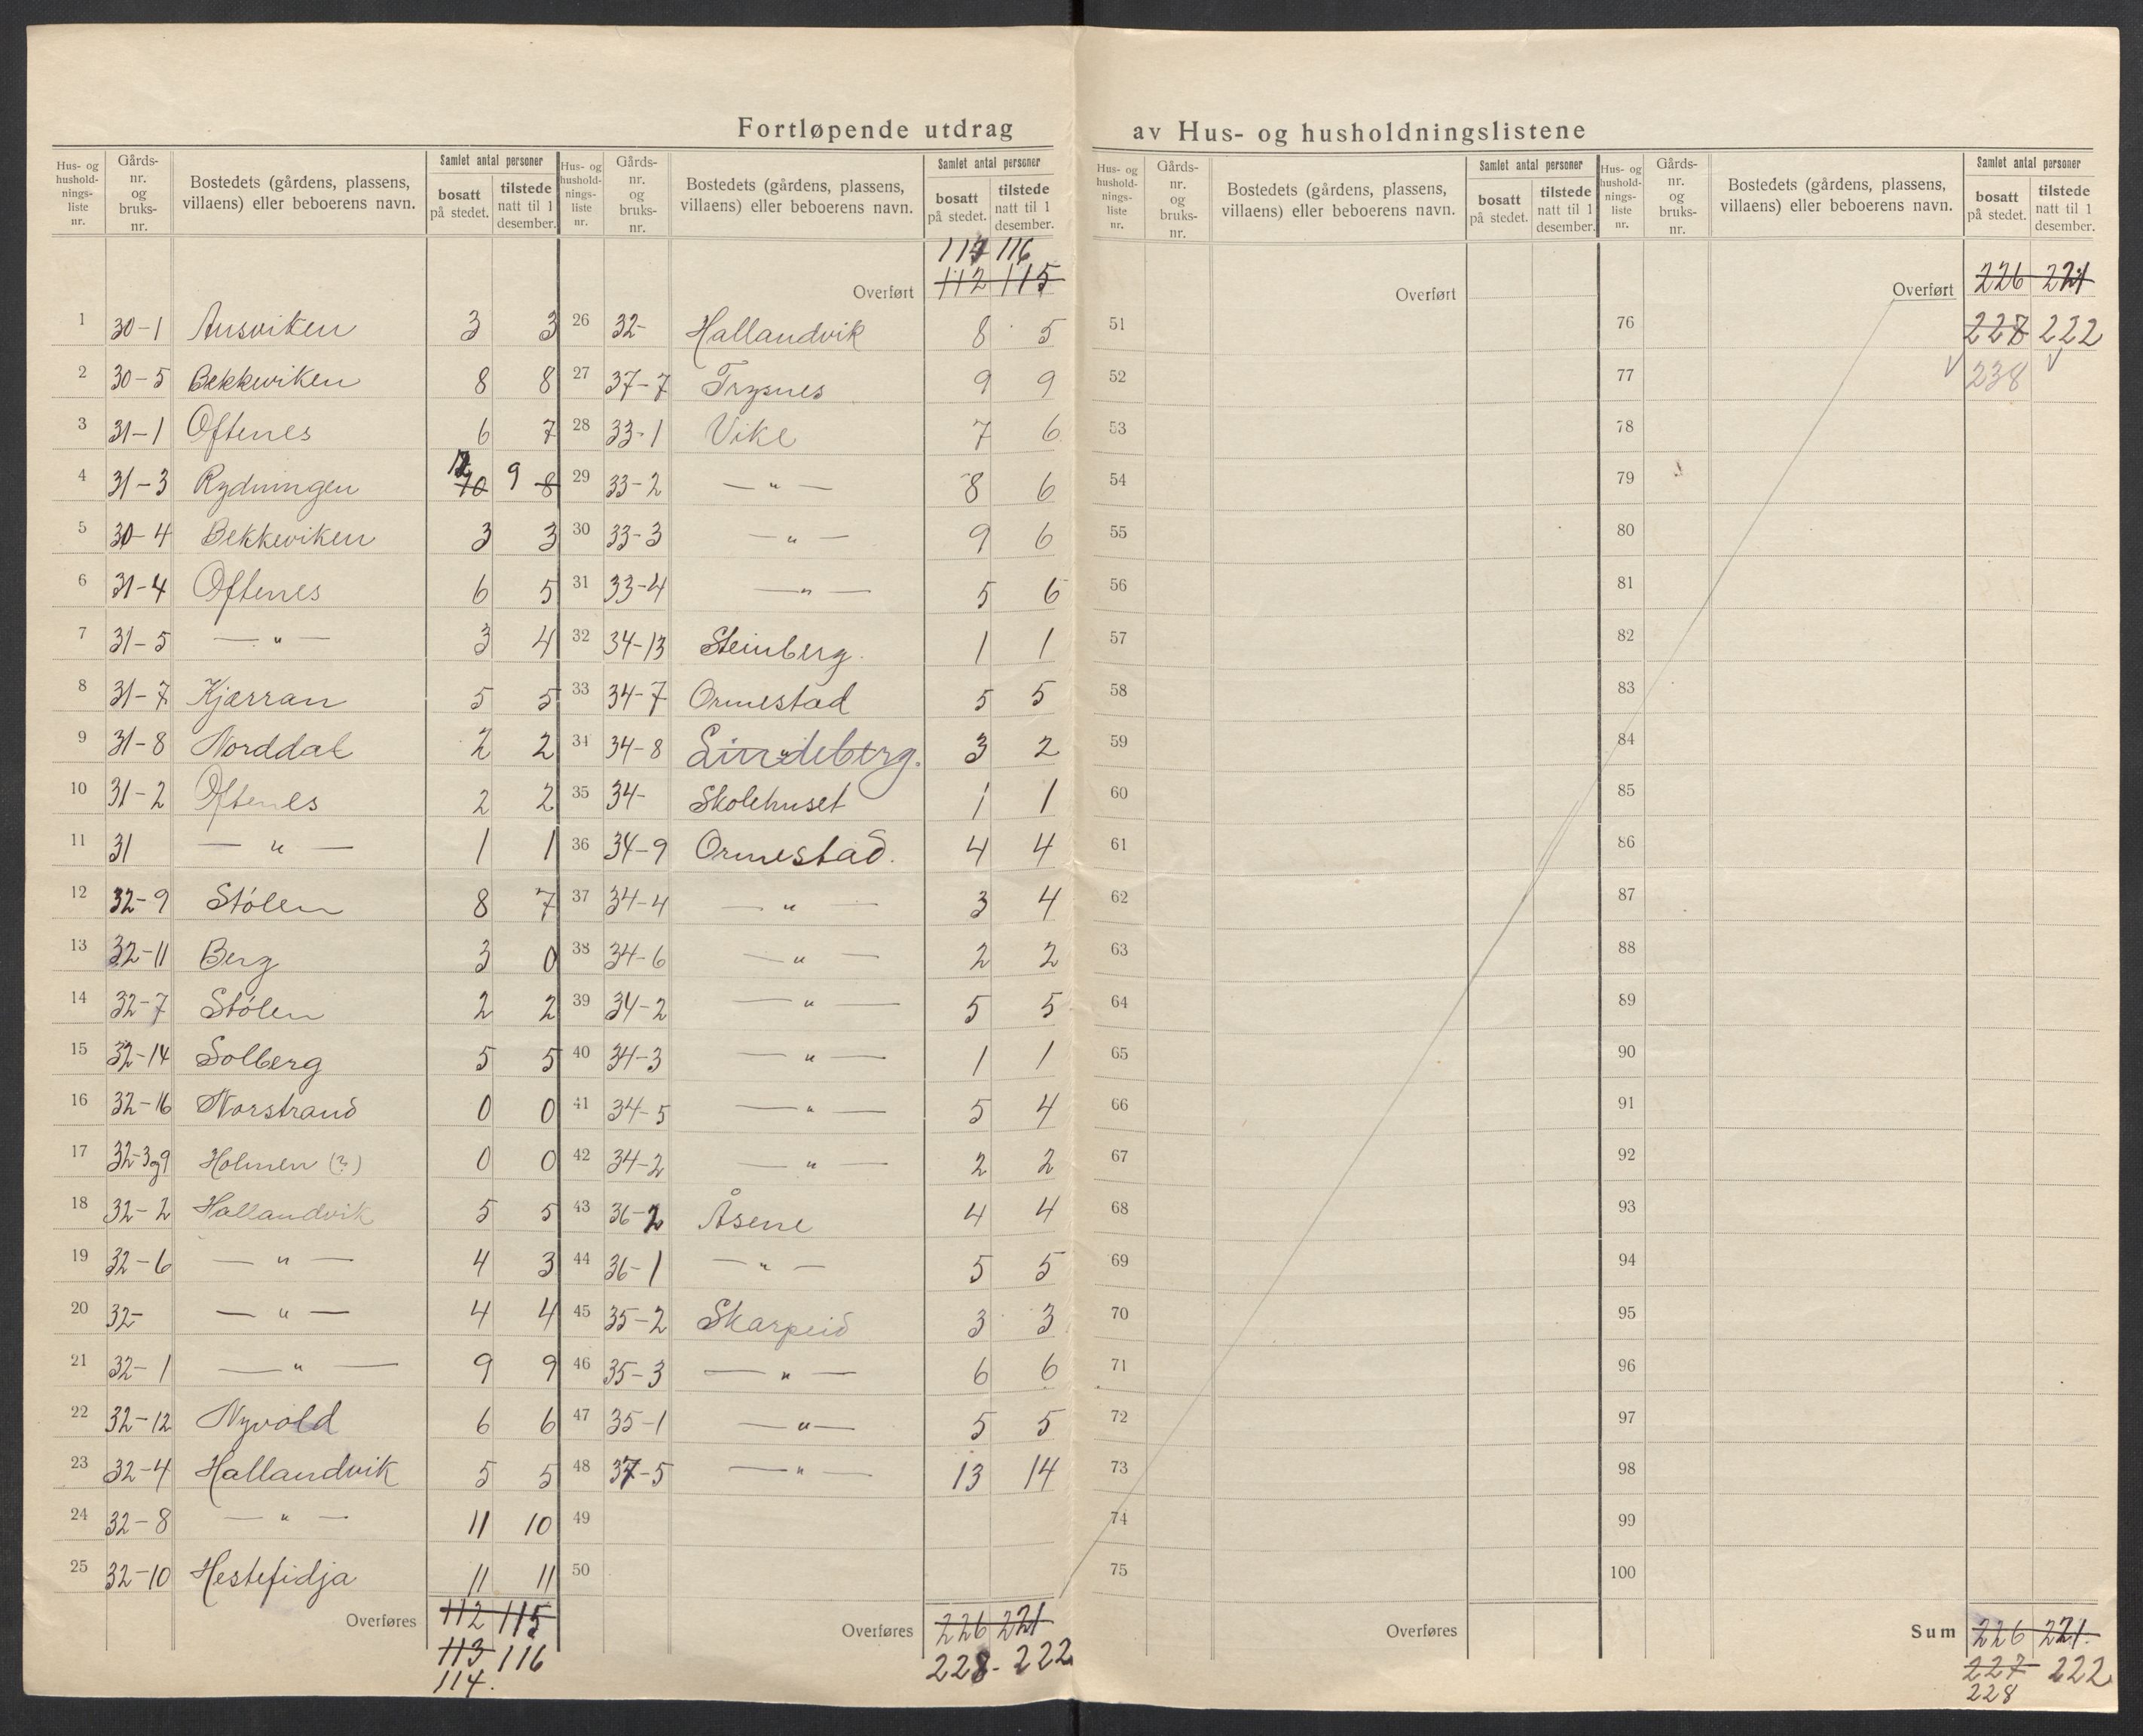 Fortløpende utdrag av Hus- og husholdningslistene
Hus- og hushold-nings-liste nr. Gårds-nr. og bruks-nr. Bostedets (gårdens, plassens, villaens) eller beboerens navn. Samlet antal personer bosatt på stedet. tilstede natt til 1 desember.
1 30-1 Ausviken 3 3
2 30-5 Bekkeviken 8 8
3 31-1 Oftenes 6 7
4 31-3 Rydningen 12 10 9 8
5 30-4 Bekkeviken 3 3
6 31-4 Oftenes 6 5
7 31-5 — " — 3 4
8 31-7 Kjærran 5 5
9 31-8 Norddal 2 2
10 31-2 Oftenes 2 2
11 31 — " — 1 1
12 32-9 Stólen 8 7
13 32-11 Berg 3 0
14 32-7 Stólen 2 2
15 32-14 Solberg 5 5
16 32-16 Norstrand 0 0
17 32-3og9 Holmen (?) 0 0
18 32-2 Hallandvik 5 5
19 32-6 — " — 4 3
20 32- — " — 4 4
21 32-1 — " — 9 9
22 32-12 Nyvold 6 6
23 32-4 Hallandvik 5 5
24 32-8 — " — 11 10
25 32-10 Hestefidja 11 11
Overføres 112 115
113 116
114.
Hus- og hushold-nings-liste nr. Gårds-nr. og bruks-nr. Bostedets (gårdens, plassens, villaens) eller beboerens navn. Samlet antal personer bosatt på stedet. tilstede natt til 1 desember.
114 116
Overført 112 115
26 32- Hallandvik 8 5
27 37-7 Trysnes 9 9
28 33-1 Vike 7 6
29 33-2 — " — 8 6
30 33-3 — " — 9 6
31 33-4 — " — 5 6
32 34-13 Steinberg. 1 1
33 34-7 Ormestad 5 5
34 34-8 Lindeberg. 3 2
35 34- Skolehuset 1 1
36 34-9 Ormestad. 4 4
37 34-4 — " — 3 4
38 34-6 — " — 2 2
39 34-2 — " — 5 5
40 34-3 — " — 1 1
41 34-5 — " — 5 4
42 34-2 — " — 2 2
43 36-2 Åsene 4 4
44 36-1 — " — 5 5
45 35-2 Skarpeid 3 3
46 35-3 — " — 6 6
47 35-1 — " — 5 5
48 37-5 — " — 13 14
49
50
Overføres 226 221
228 - 222
Hus- og hushold-nings-liste nr. Gårds-nr. og bruks-nr. Bostedets (gårdens, plassens, villaens) eller beboerens navn. Samlet antal personer bosatt på stedet. tilstede natt til 1 desember.
Overført
51
52
53
54
55
56
57
58
59
60
61
62
63
64
65
66
67
68
69
70
71
72
73
74
75
Overføres
Hus- og hushold-nings-liste nr. Gårds-nr. og bruks-nr. Bostedets (gårdens, plassens, villaens) eller beboerens navn. Samlet antal personer bosatt på stedet. tilstede natt til 1 desember.
Overført 226 221
76 228 222
77 238
78
79
80
81
82
83
84
85
86
87
88
89
90
91
92
93
94
95
96
97
98
99
100
Sum 226 221.
227 222
228